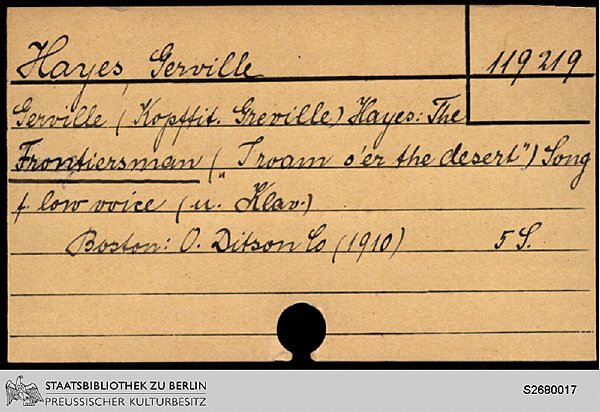 Hayes, Gerville
119219
Gerville (Kopftit. Greville) Hayes: The
Frontiersman („I roam o'er the desert") Song
f. low voice (u. Klav.)
Boston: O. Ditson Co (1910) 5 S.
STAATSBIBLIOTHEK ZU BERLIN
PREUSSISCHER KULTURBESITZ
S2680017